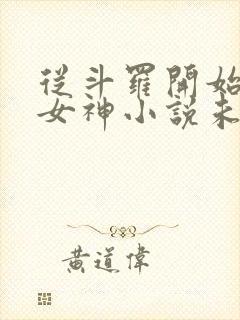 從斗羅開始
女神小說未
黃道偉